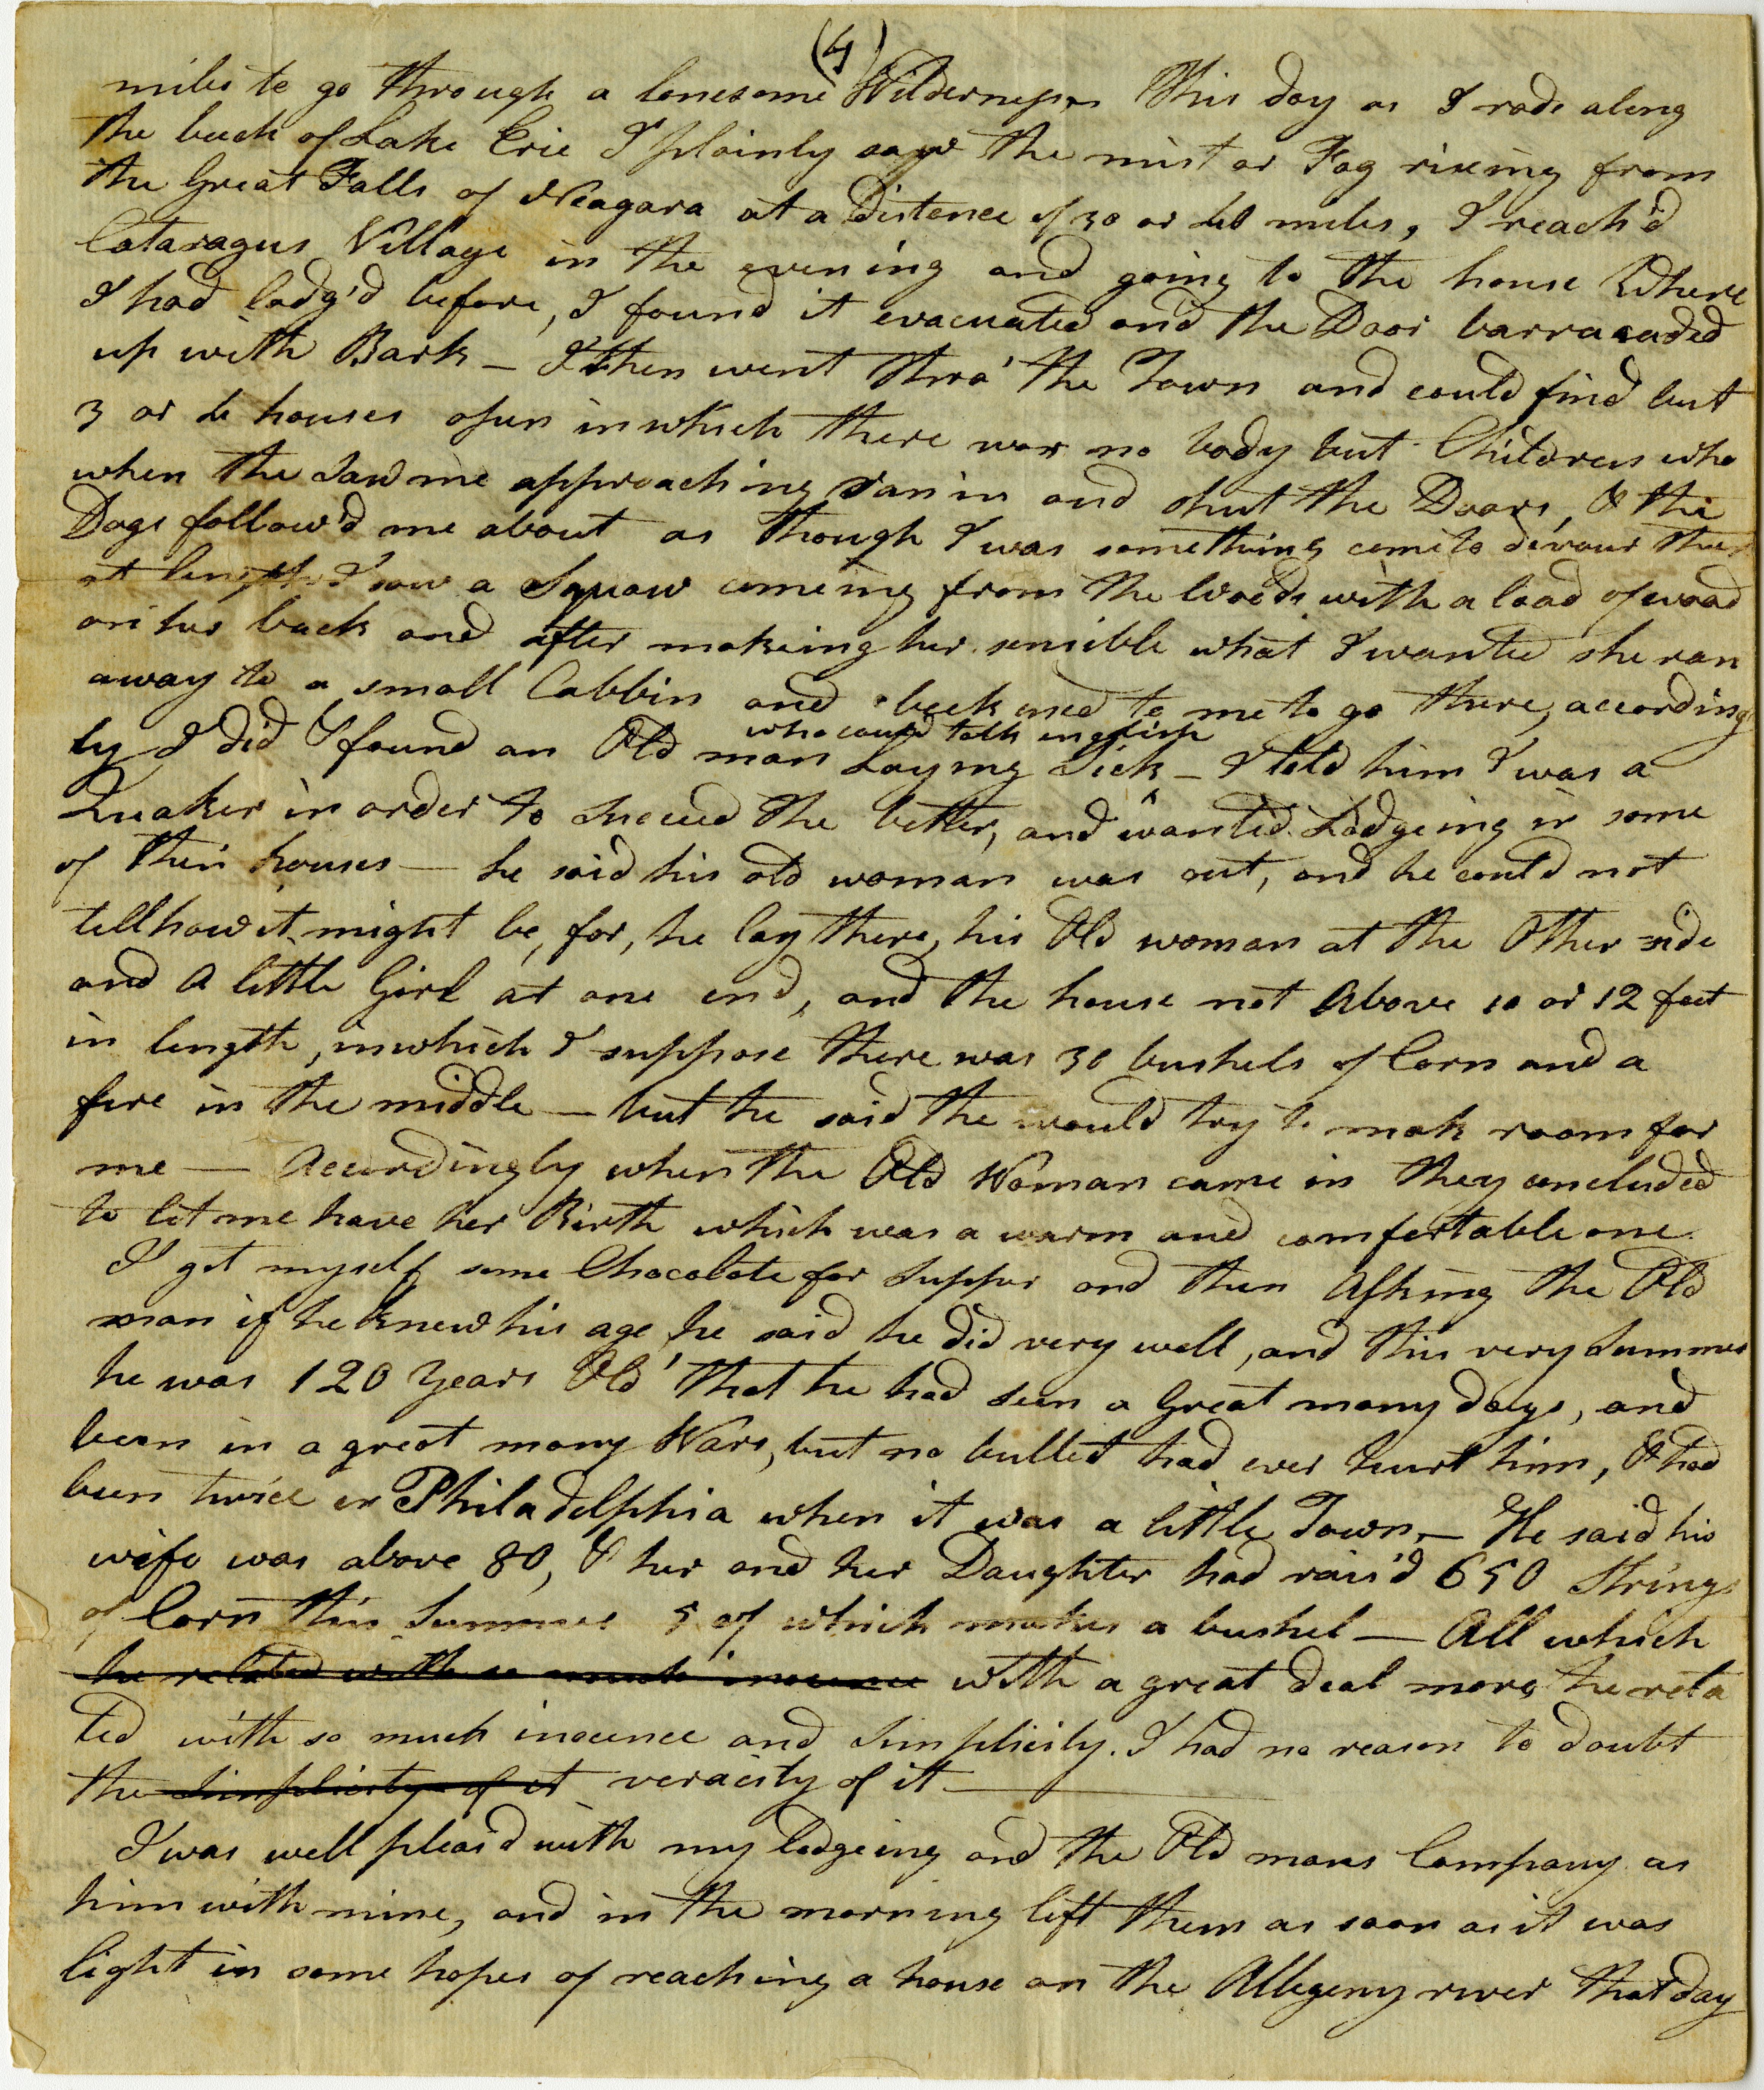 (4)
miles to go through a lonesome Wilderness This day as I rode along
the beech of Lake Erie I plainly saw the mist or Fog riseing from
the Great Falls of Neagara at a Distence of 30 or 40 miles, I reach'd
Cataragus Village in the evening and going to the house Where
I had lodg'd before, I found it evacuated and the Door barracaded
up with Bark — I then went thro' the Town and could find but
3 or 4 houses open in which there was no body but Children who
when the saw me approaching ran in and shut the Doors, & the
Dogs follow'd me about as though I was something come to devour them
at length I saw a Squaw comeing from the Woods with a load of wood
on her back and after makeing her sensible what I wanted she ran
away to a small Cabbin and beckoned to me to go there, according
ly I did & found an Old man Laying Sick — I told him I was a
who could talk english
Quaker in order to Succeed the better, and wanted Lodgeing in some
of their houses — he said his old woman was out, and he could not
tell how it might be, for, he lay there, his Old woman at the Other side
and a little Girl at one end, and the house not above 10 or 12 feet
in length, in which I suppose there was 30 bushels of Corn and a
fire in the middle — but he said the would try to mak room for
me — Accordingly when the Old Woman came in they concluded
to let me have her Birth which was a warm and comfortable one
I got myself some Chocolate for Supper and then Asking the Old
man if he knew his age, he said he did very well, and this very Summer
he was 120 Years Old that he had seen a Great many days, and
been in a great many Wars, but no bullet had ever hurt him, & had
been twice in Philadelphia when it was a little Town, — He said his
wife was above 80, & her and her Daughter had rais'd 650 Strings
of Corn this Summer 5 of which makes a bushel — All which
he related with so much inocence with a great deal more he rela
ted with so much inocence and Simplicity. I had no reason to doubt
the Simplicity of it veracity of it —
I was well pleas'd with my lodgeing and the Old mans Company as
him with mine, and in the morning left them as soon as it was
light in some hopes of reaching a house on the Allegeny river that day